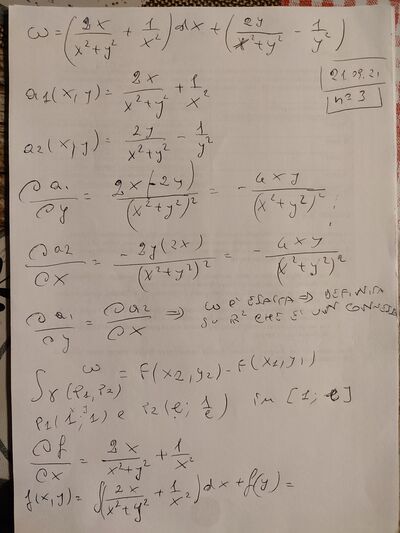 ω = (2x/(x²+y²) + 1/x²) dx + (2y/(x²+y²) - 1/y²)
21.09.21
n° 3
a1(x,y) = 2x/(x²+y²) + 1/x²
a2(x,y) = 2y/(x²+y²) - 1/y²
∂a1/∂y = 2x(-2y)/(x²+y²)² = - 4xy/(x²+y²)² ;
∂a2/∂x = -2y(2x)/(x²+y²)² = - 4xy/(x²+y²)²
∂a1/∂y = ∂a2/∂x ⇒ ω È ESATTA ⇒ DEFINITA
SU R² CHE È UN CONNESSO
∫γ(P1,P2) ω = F(x2,y2) - F(x1,y1)
P1(1;1) e P2(e; 1/e) in [1; e]
∂f/∂x = 2x/(x²+y²) + 1/x²
f(x,y) = ∫(2x/(x²+y²) + 1/x²) dx + f(y) =